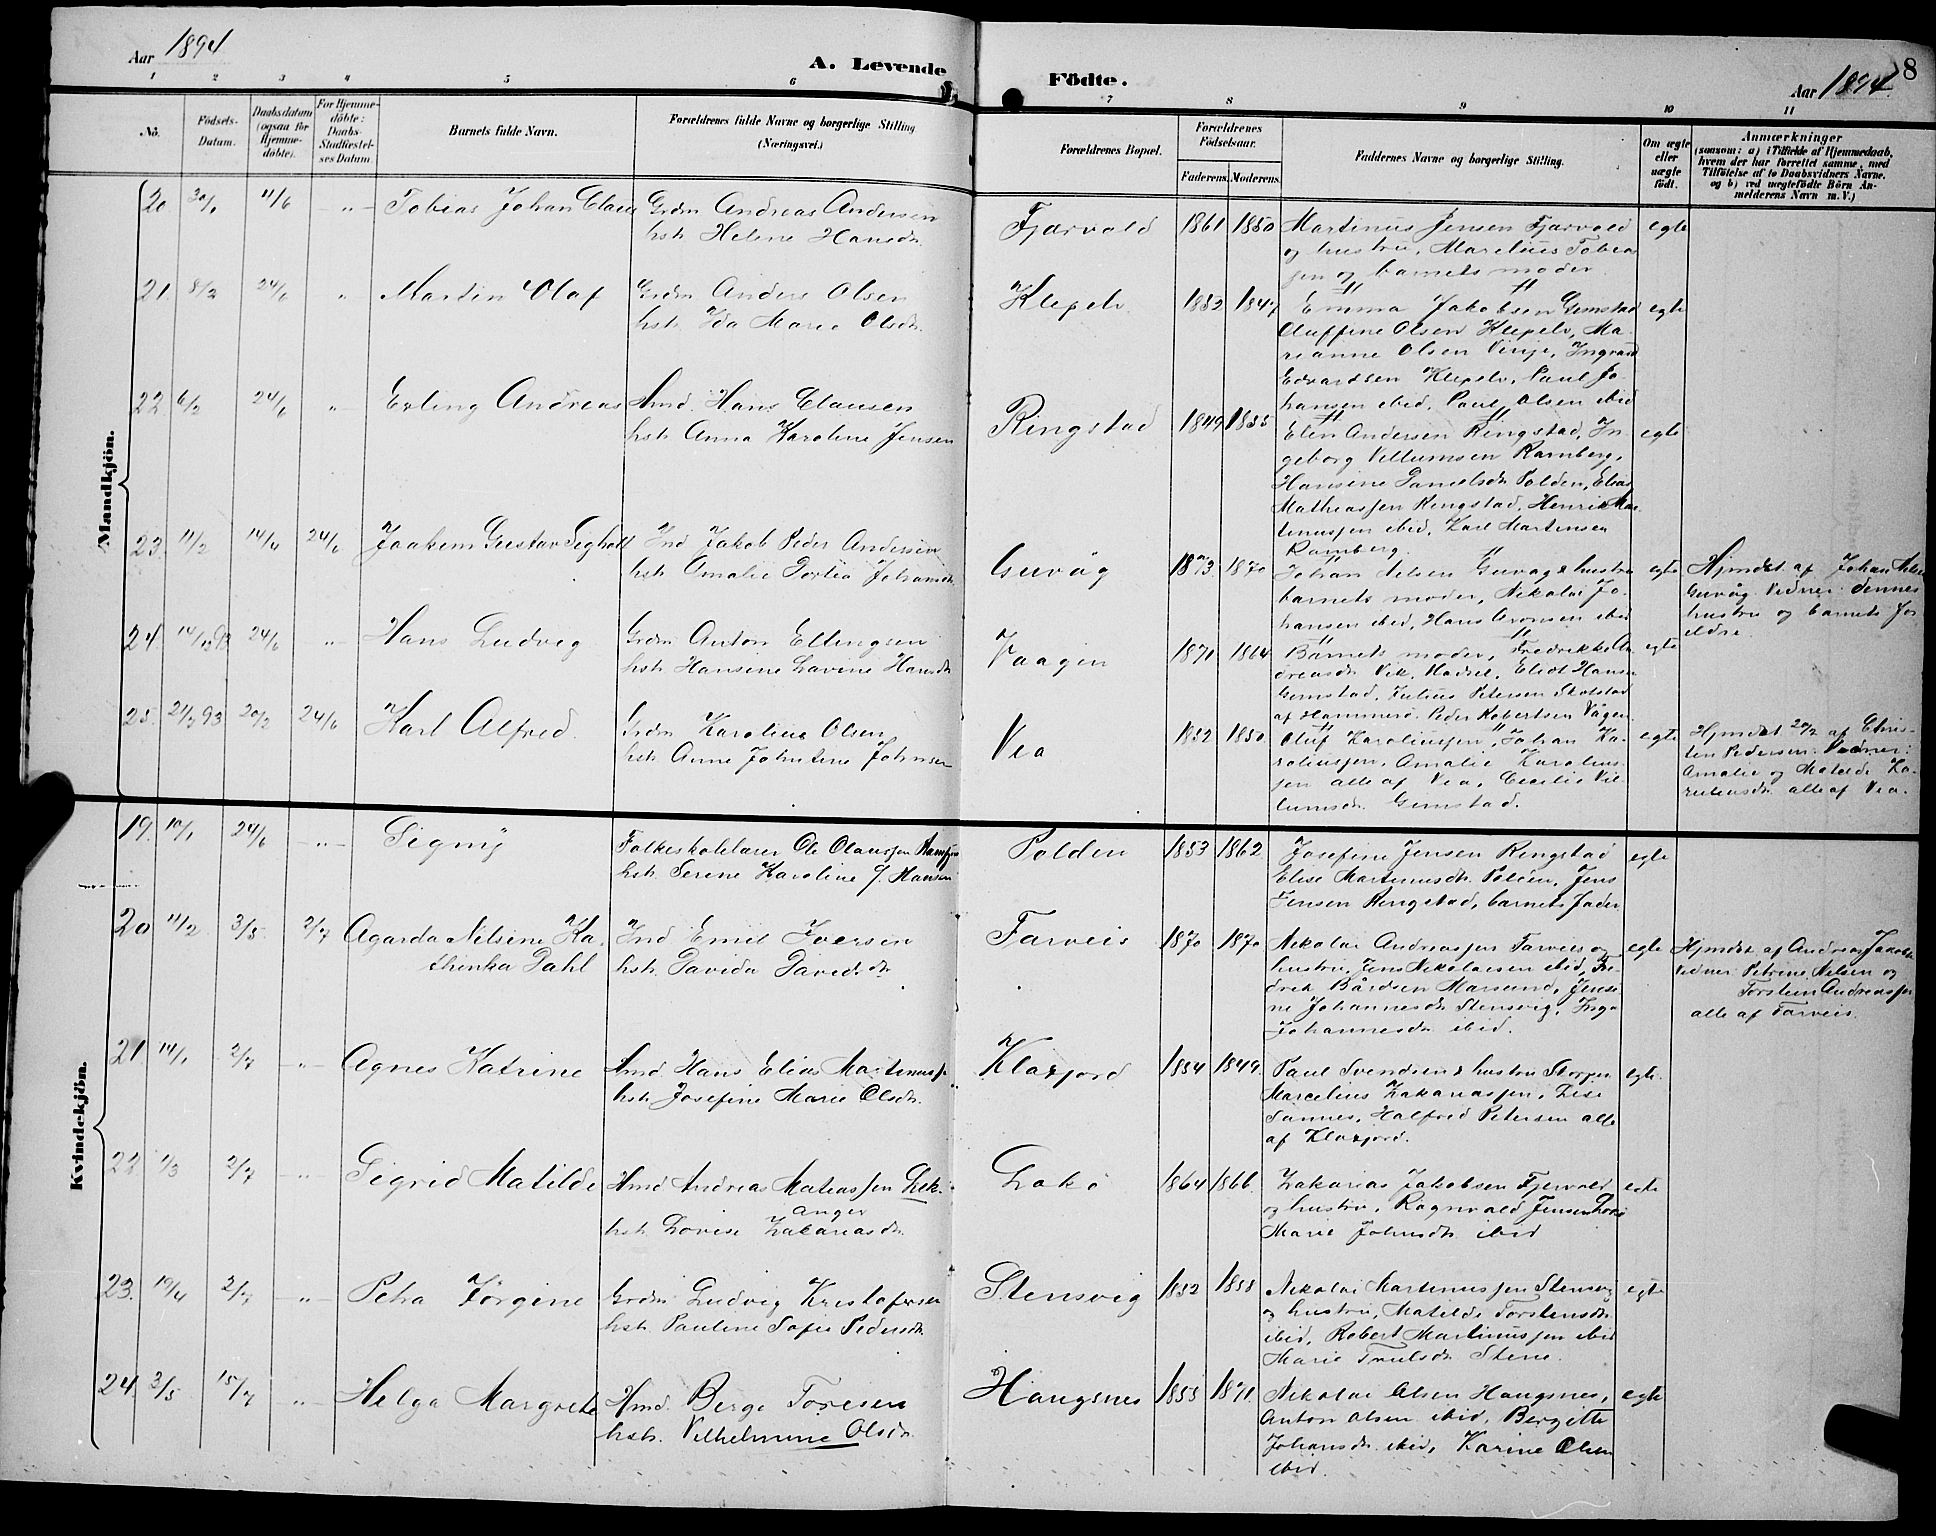 Aar 1894
A. Levende Födte.
Aar 1894.
8
1 2 3 4 5 6 7 8 9 10 11
No.
Födsels-Datum.
Daabsdatum (ogsaa for Hjemme-döbte).
For Hjemme-döbte: Daabs-Stadfæstel-ses Datum.
Barnets fulde Navn.
Forældrenes fulde Navne og borgerlige Stilling (Næringsvei.)
Forældrenes Bopæl.
Forældrenes Födselsaar.
Faderens. Moderens.
Faddernes Navne og borgerlige Stilling.
Om ægte eller uægte født.
Anmærkninger
(saasom: a) i Tilfælde af Hjemmedaab, hvem der har forrettet samme, med Tilföielse af to Daabsvidners Navne. og b) ved uægtefödte Börn An-melderens Navn m. V.)
Mandkjön.
20. 30/1 11/6 -"- Tobias Johan Claus Grdm Andreas Andersen
hstr. Helene Hansdr.
Fjærvold 1861 1850 Martinus Jensen Fjærvold egte
og hustru, Marelius Tobias
sen og barnets moder.
21. 8/2 24/6 " Martin Olaf Grdm Anders Olsen
hstr. Ida Marie Olsdr.
Klepelv 1852 1847 Emma Jakobsen Gimstad egte
Oluffine Olsen Klepelv, Ma-
rianne Olsen Vinje, Ingvard
Edvardsen Klepelv, Paul Jo
hansen ibid, Paul Olsen ibid
22 6/2 24/6 " Erling Andreas Hans Clausen
hstr. Anna Karoline Jensen
Ringstad 1849 1855 Elen Andersen Ringstad, In- egte
geborg Villumsen Ramberg,
Hansine Danielsdr. Polden, Elias
Mathiassen Ringstad, Henrik Mar
tinussen ibid, Karl Martinsen
Ramberg.
23. 11/2 14/4 24/6 Joakim Gustav Ind Jakob Peder Andersen
hstr. Amalie Dortea Johansdr.
Guvåg 1873 1870 Johan Nilsen Guvåg & hustru egte
barnets moder, Nikolai Jo-
hansen ibid, Hans Aronsen ibid
Hjmdøt af Johan Nilsen
Guvåg. Vidner: dennes
hustru og barnets for
ældre.
24. 14/12 93 24/6 " Hans Ludvig Grdm Anton Ellingsen
hstr. Hansine Lavine Hansdr
Vaagen 1871 1864 Barnets moder, Fredrikke An egte
dreasdr Vik, Hadsel, Hansen
Gimstad, Julius Petersen Skotstad
af Hammerö. Peder Robertsen Vågen.
25. 93 20/2 24/6 Karl Alfred. Grdm Karolius Olsen
hstr. Anne Johnsen
Vea 1852 1850 Oluf Karoliussen, Johan Ka- egte
roliussen, Amalie Karolius-
sen alle af Vea, Cecilie Vil-
lumsdr. Gimstad.
Hjmdøt 20/2 af Chris-
ten Pedersen. Vidner:
Amalie og Matilde Ka-
alle af Vea.
Kvindekjön.
19. 10/1 24/6 -"- Signy Folkeskolelærer Ole Olaussen
hstr. Serine Karoline J. Hansen
Polden 1853 1862 Josefine Jensen Ringstad egte
Elise Martinusdr. Polden, Jens
Jensen Ringstad, barnets fader
20 11/2 3/5. 2/7 Agarda Nilsine Ka- Ind Emil Iversen
thinka Dahl hstr. Davida Davidsdr
Farveis 1870 1870 Nikolai Andreassen Farveis og egte
hustru, Jens Nikolaisen ibid, Fre-
drik Bårdsen Marsund, Jensi
ne Johannesdr. Stensvig, Inga
Johannesdr ibid.
Hjmdøt af Andreas
Vidner: Petrine Nilsen og
Torstein Andreassen
alle af Farveis.
21. 14/1 2/7 -"- Agnes Katrine Hans Elias Martinuss.
hstr. Josefine Marie Olsdr.
Klaxfjord 1854 1849. Paul Svendsen & hustru egte.
Marcelius Zakariassen, Lise
Sannes, Halfred Petersen alle
af Klaxfjord.
22 1/3 2/7 -"- Sigrid Matilde Hmd Andreas Matiassen Lek-
anger
hstr. Lovise Zakariasdr.
Lakö 1864 1866. Zakarias Jakobsen Fjervold egte
og hustru, Ragnvald Jensen
Marie Johnsdr. ibid
23. 19/4 2/7 -"- Petra Jörgine Grdm Ludvig Kristofersen
hstr. Pauline Sofie Pedersdr.
Stensvig 1852 1858 Nikolai Martinussen Stensvig egte
og hustru, Matilde Torstensdr.
ibid, Robert Martinussen ibid
Marie Truelsdr Stene.
24. 3/5 15/7 -"- Helga Margrete Hmd. Berge Toresen
hstr. Vilhelmine Olsdr.
Haugsnes 1855 1871. Nikolai Olsen Haugsnes, egte
Anton Olsen ibid, Bergitte
Johansdr. ibid, Karine Olsen
ibid.